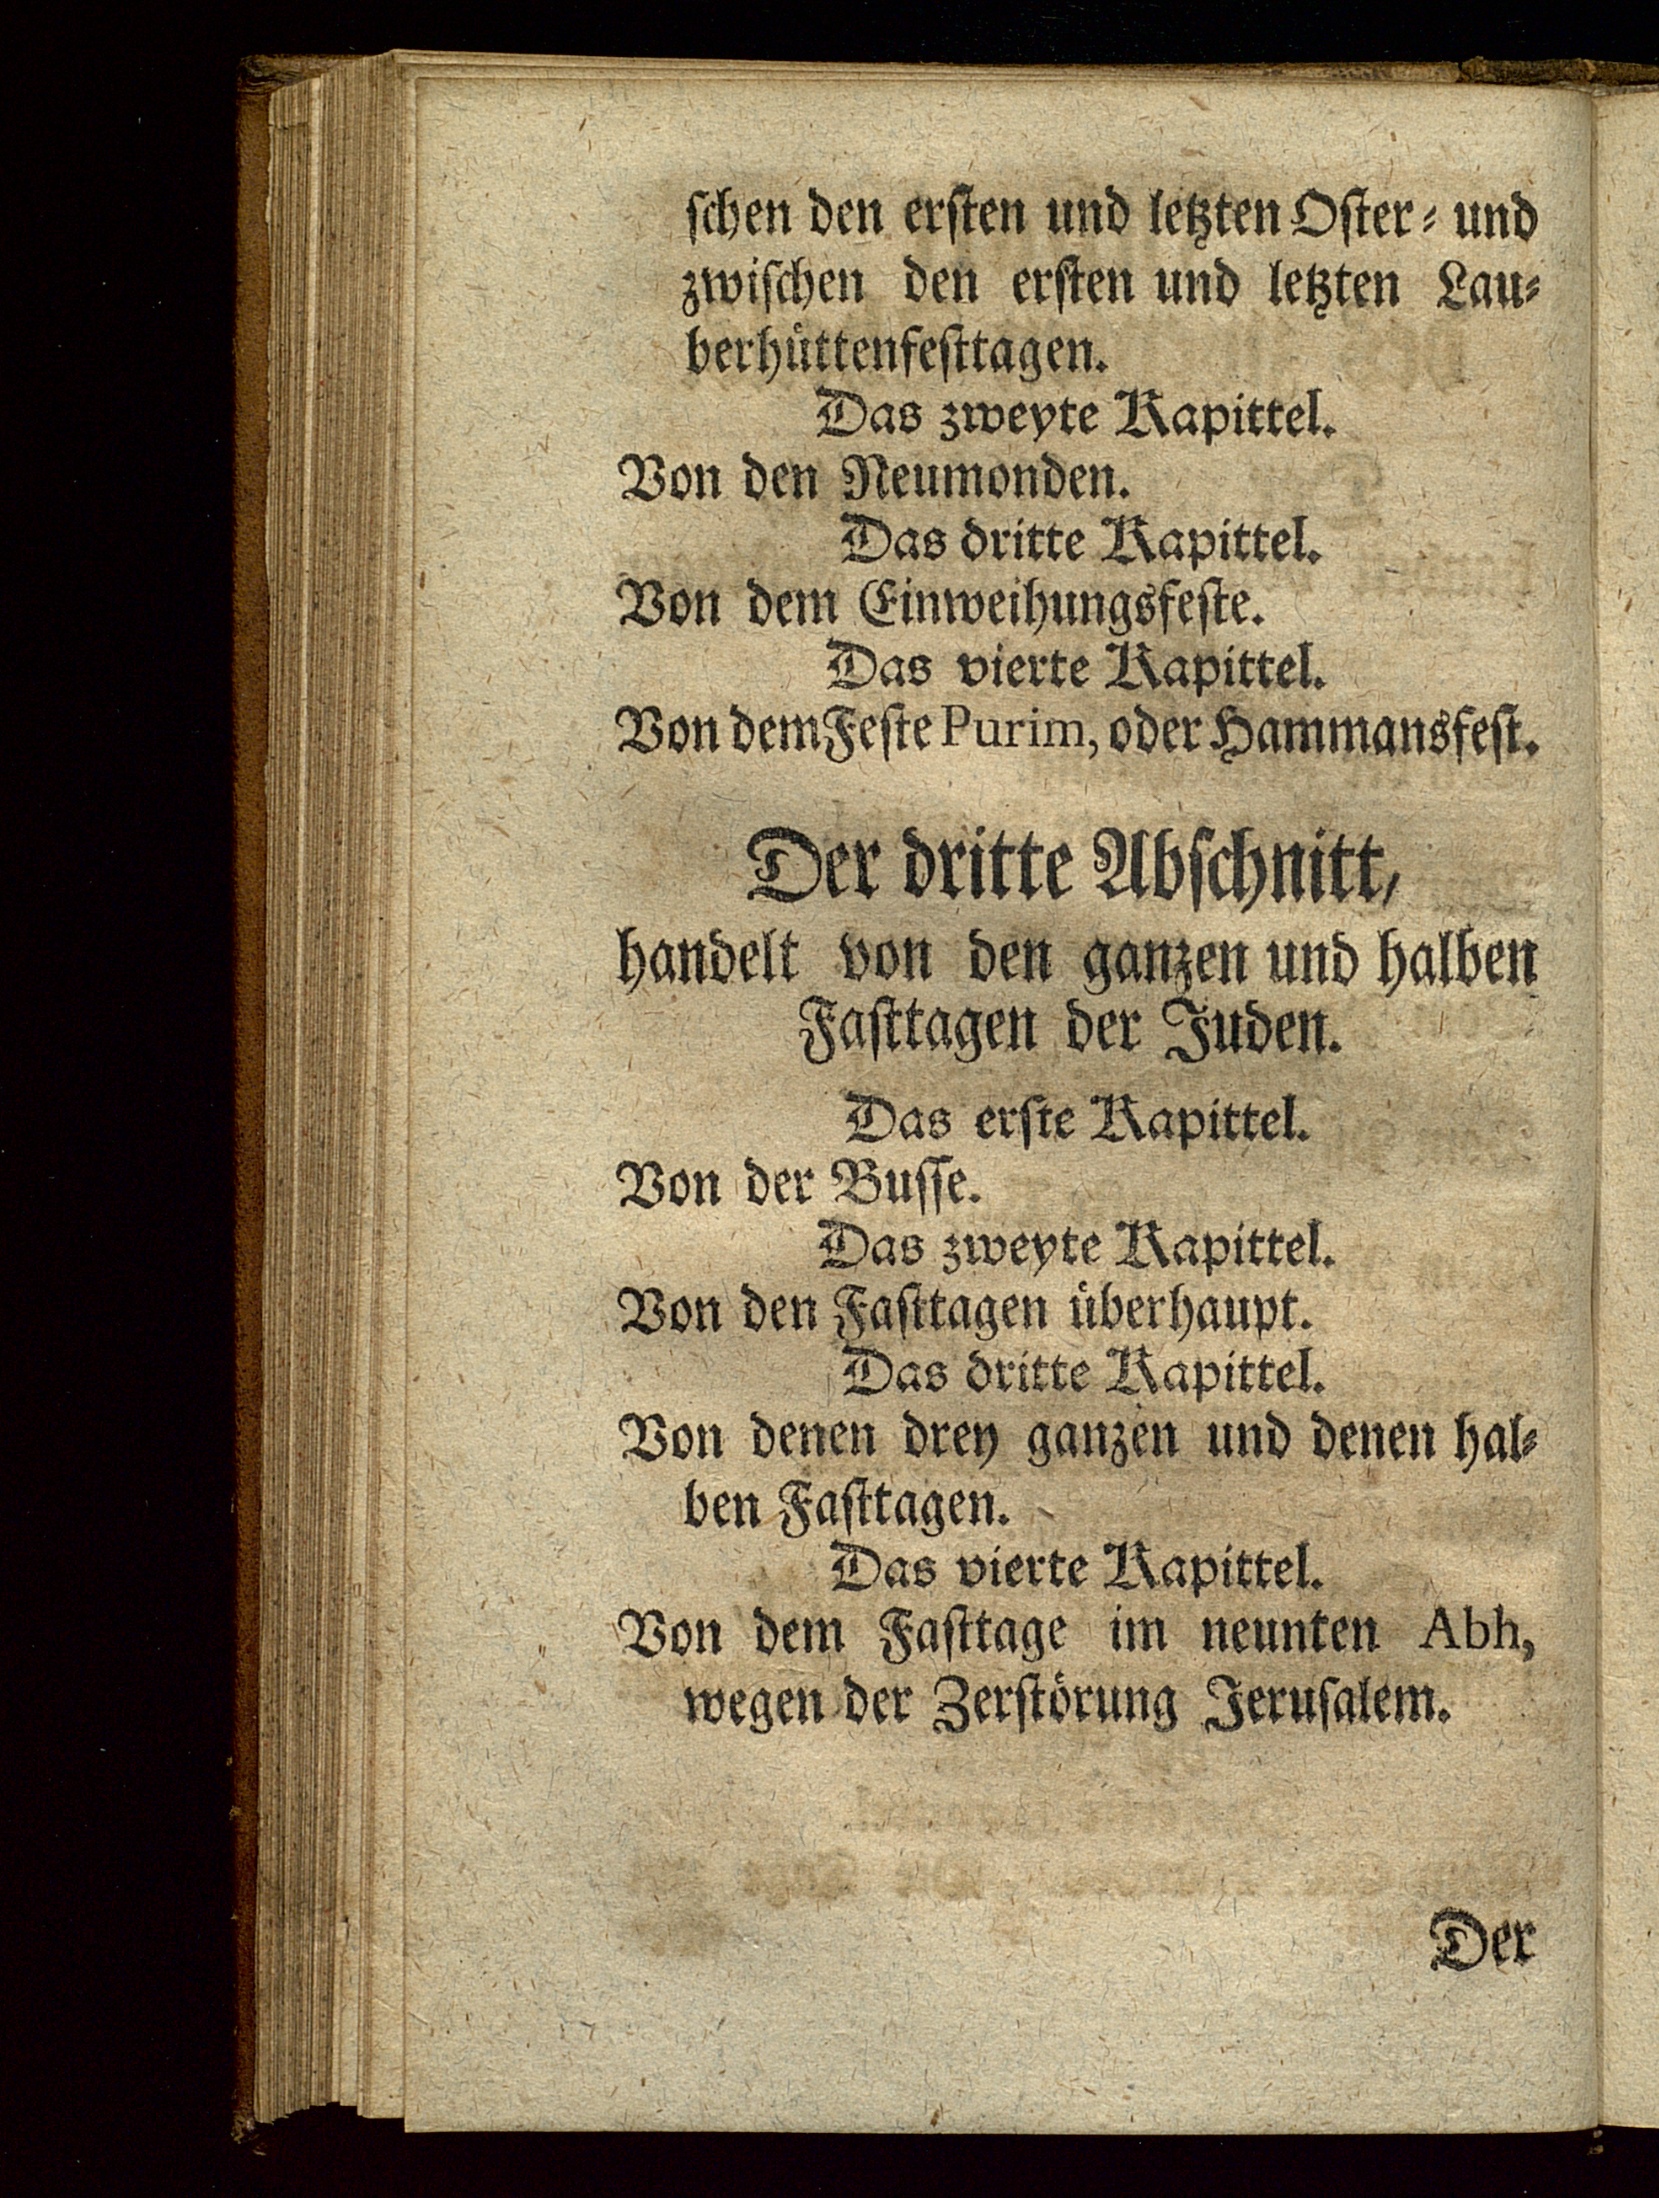 ſchen den erſten und letzten Oſter⸗ und
zwiſchen den erſten und letzten Lau⸗
berhuͤttenfeſttagen.
Das zweyte Kapittel.
Von den Neumonden.
Das dritte Kapittel.
Von dem Einweihungsfeſte.
Das vierte Kapittel.
Von dem Feſte Purim, oder Hammansfeſt.
Der dritte Abſchnitt,
handelt von den ganzen und halben
Faſttagen der Juden.
Das erſte Kapittel.
Von der Buſſe.
Das zweyte Kapittel.
Von den Faſttagen uͤberhaupt.
Das dritte Kapittel.
Von denen drey ganzen und denen hal⸗
ben Faſttagen.
Das vierte Kapittel.
Von dem Faſttage im neunten Abh,
wegen der Zerſtoͤrung Jeruſalem.
Der